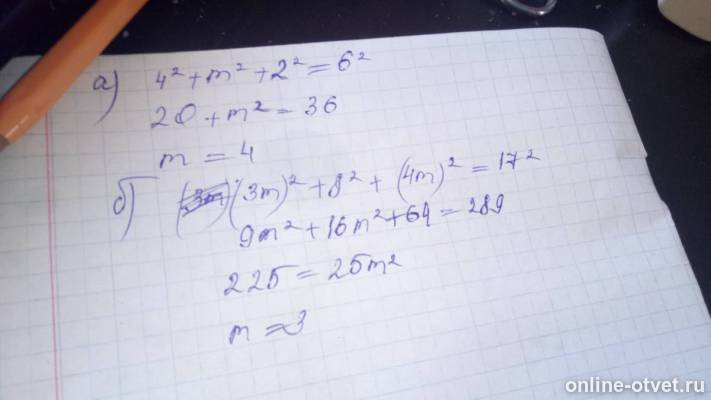 а) 4² + m² + 2² = 6²
20 + m² = 36
m = 4
б) (3m)² + 8² + (4m)² = 17²
9m² + 16m² + 64 = 289
225 = 25m²
m = 3
online-otvet.ru